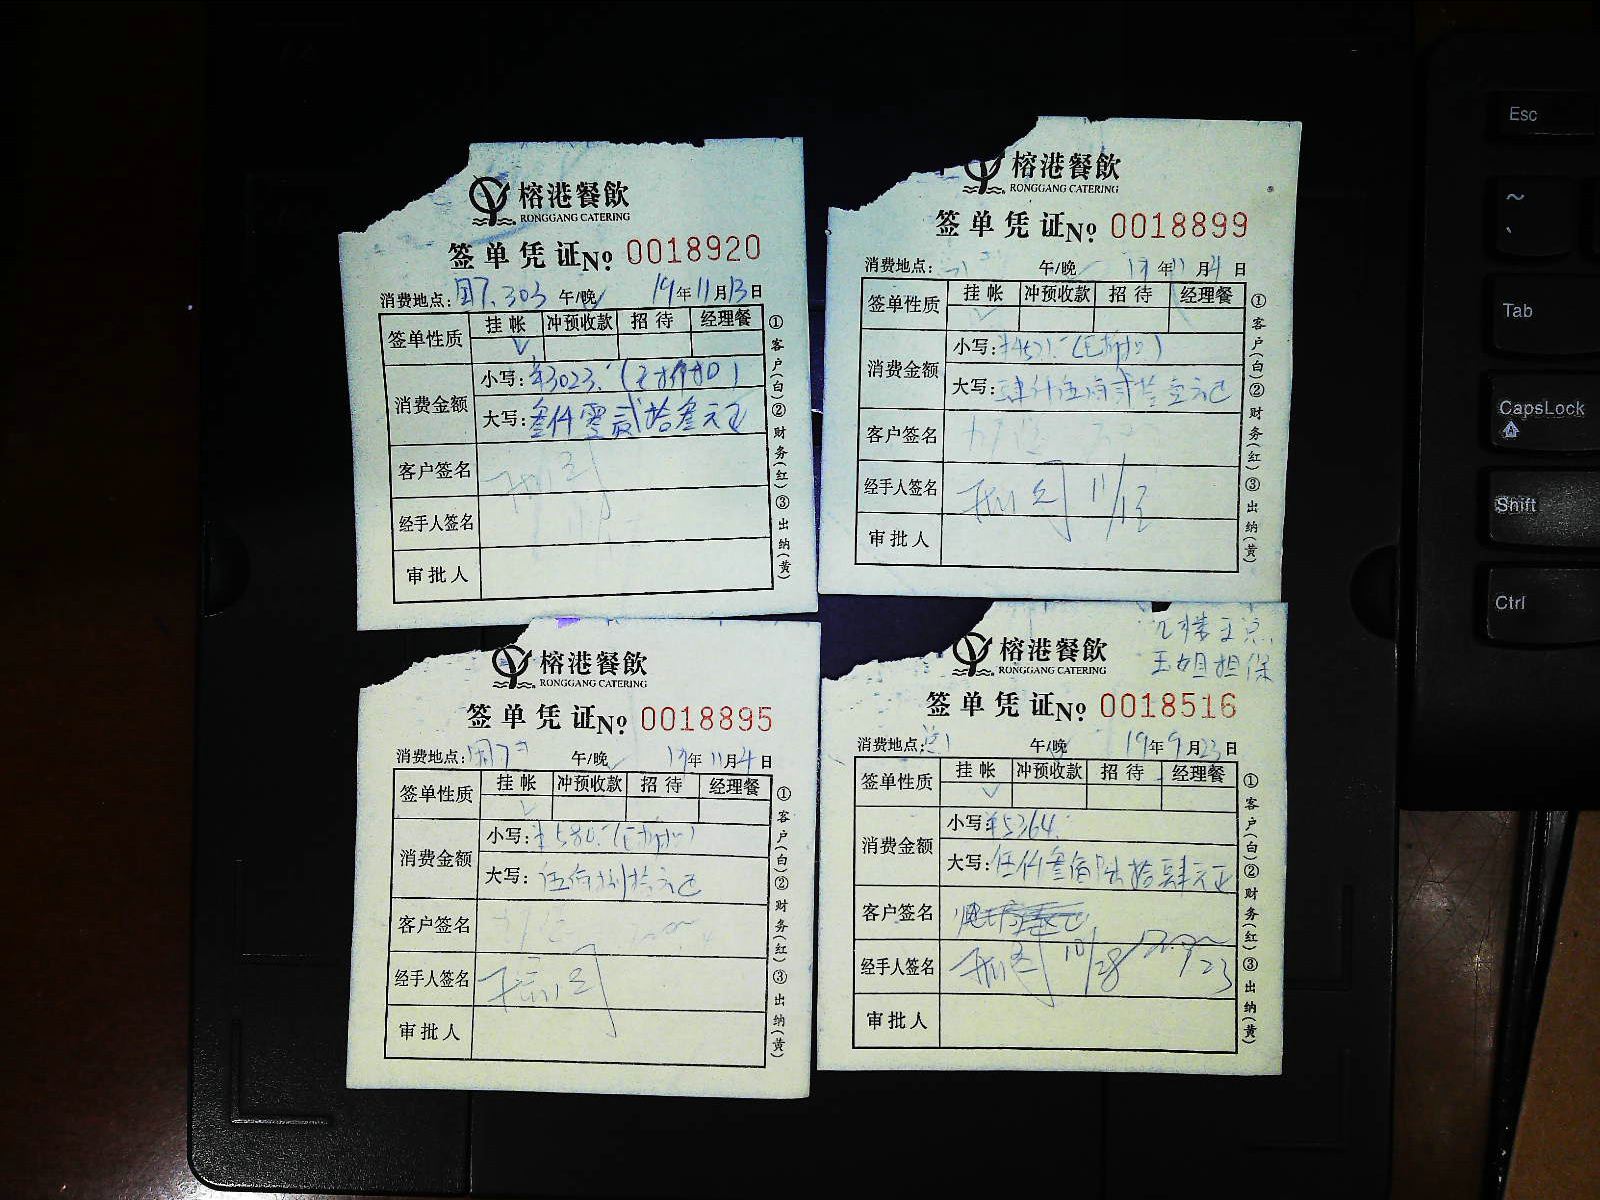 榕港餐飲
RONGGANG CATERING
签单凭证 No 0018920
消费地点: 303 午/晚 19年11月13日
签单性质 挂帐 冲预收款 招待 经理餐
消费金额 小写: ¥3023.
大写: 叁仟零贰拾叁元正
客户签名
经手人签名
审批人
①客户(白)②财务(红)③出纳(黄)
榕港餐飲
RONGGANG CATERING
签单凭证 No 0018899
消费地点: 午/晚 19年11月4日
签单性质 挂帐 冲预收款 招待 经理餐
消费金额 小写: ¥4521.
大写: 肆仟伍佰贰拾壹元正
客户签名
经手人签名
审批人
①客户(白)②财务(红)③出纳(黄)
榕港餐飲
RONGGANG CATERING
签单凭证 No 0018895
消费地点: 午/晚 19年11月4日
签单性质 挂帐 冲预收款 招待 经理餐
消费金额 小写: ¥580.
大写: 伍佰捌拾元正
客户签名
经手人签名
审批人
①客户(白)②财务(红)③出纳(黄)
王姐担保
榕港餐飲
RONGGANG CATERING
签单凭证 No 0018516
消费地点: 午/晚 19年9月23日
签单性质 挂帐 冲预收款 招待 经理餐
消费金额 小写: ¥5364.
大写: 伍仟叁佰陆拾肆元正
客户签名
经手人签名 10/28
审批人
①客户(白)②财务(红)③出纳(黄)
Esc
~
Tab
CapsLock
Shift
Ctrl